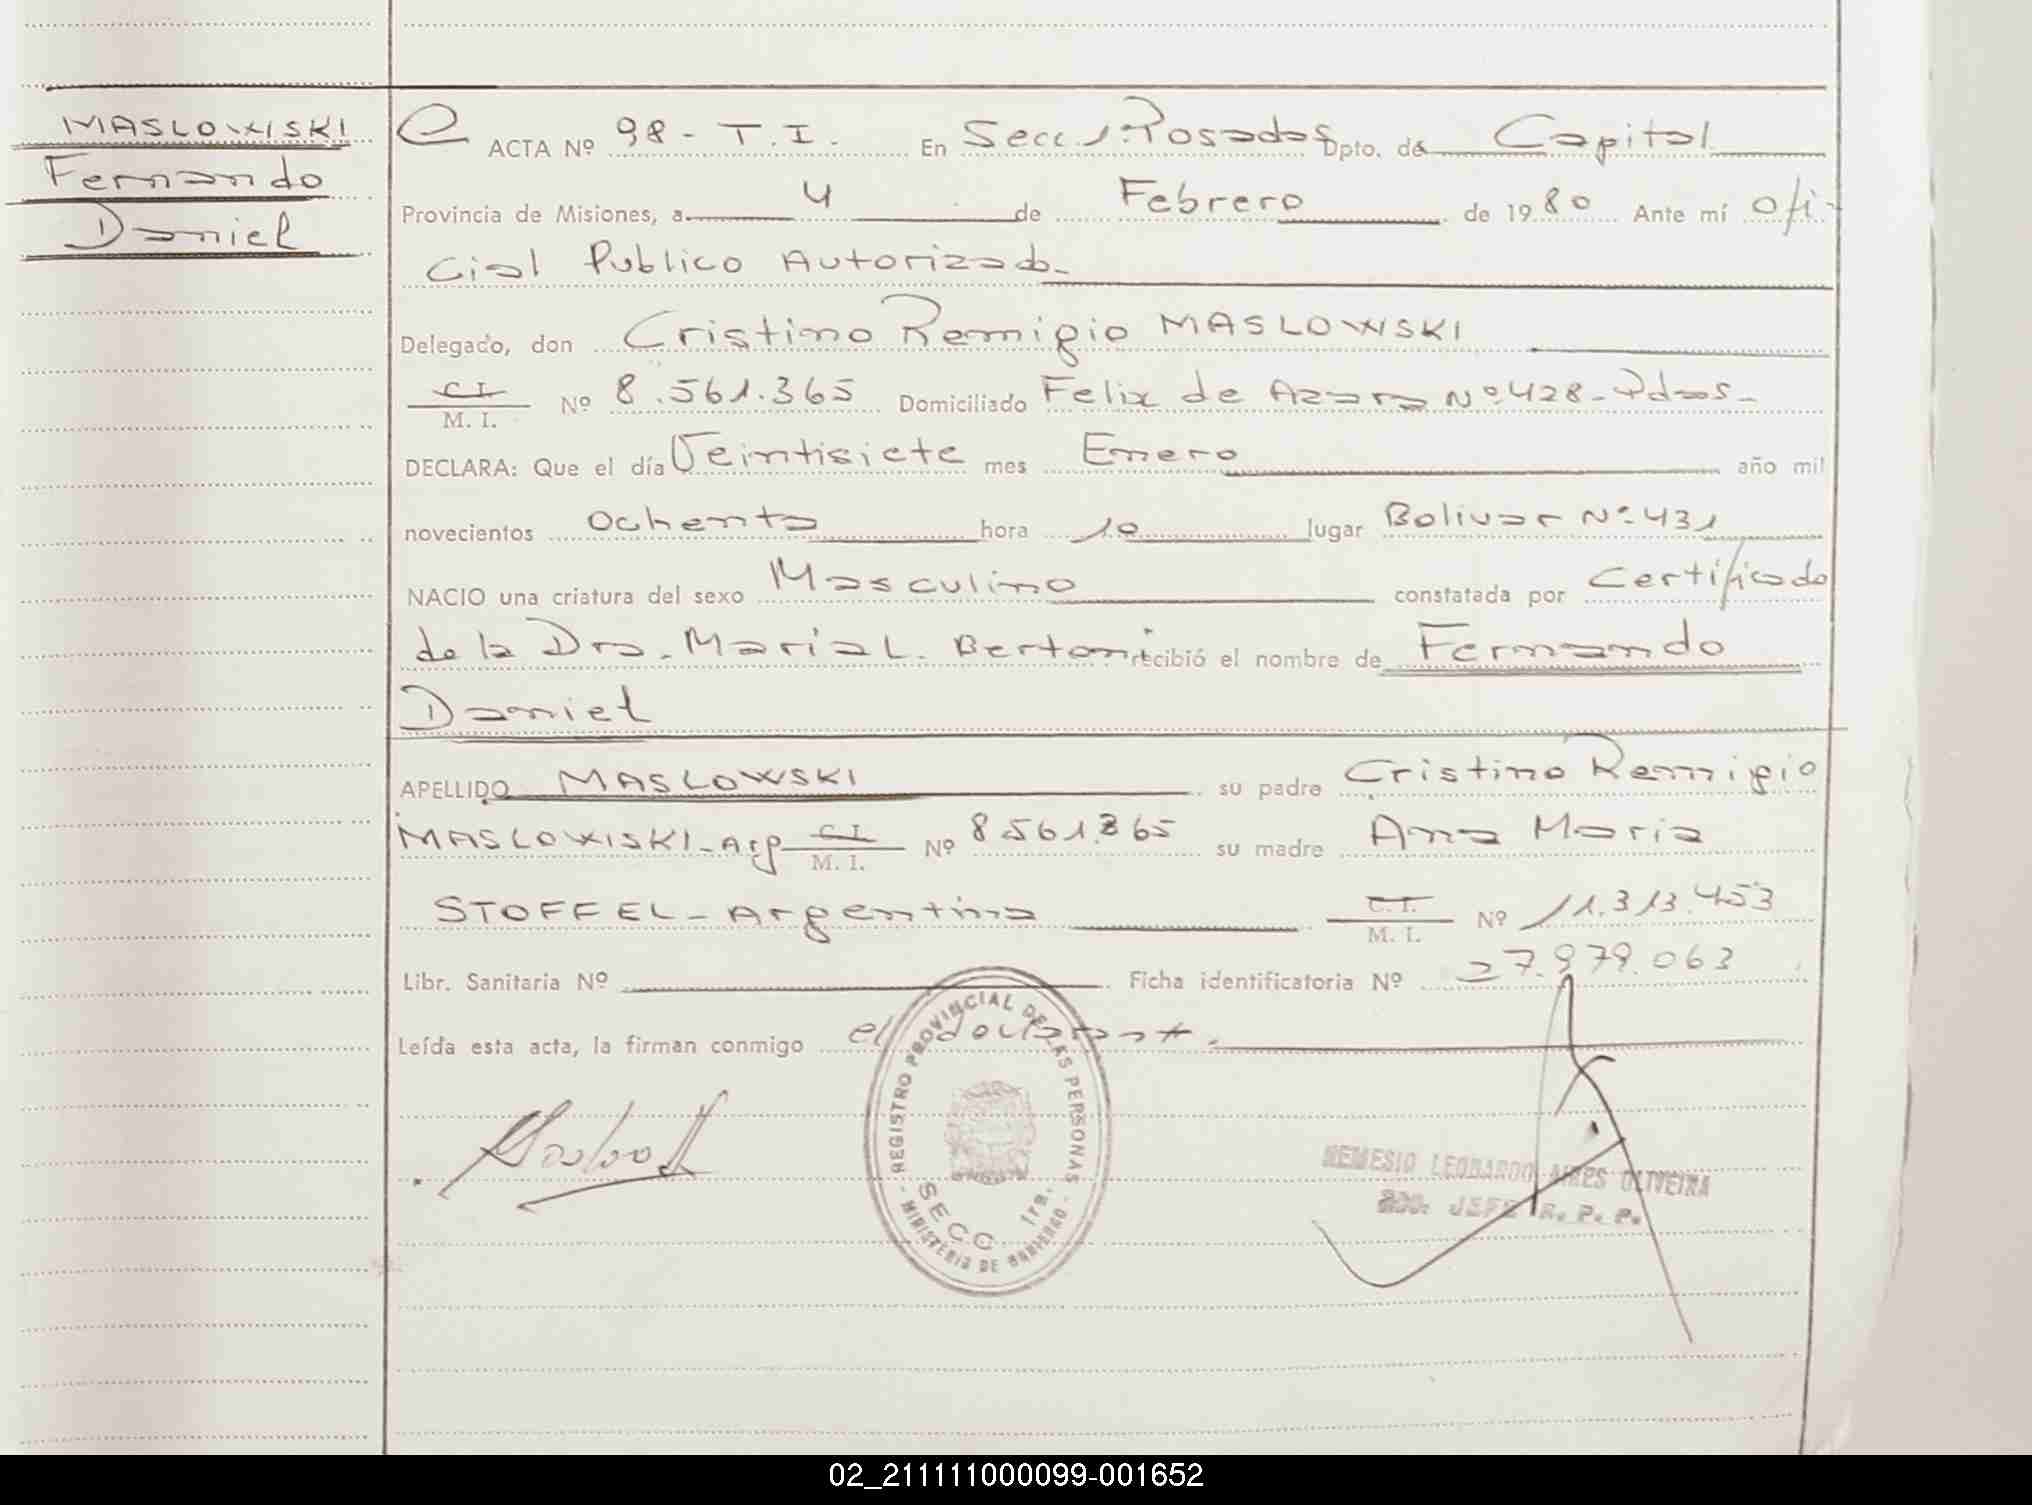 MASLOWISKI
Fernando
Daniel
ACTA Nº 98 - T.I. En Secc. 1. Posadas Dpto. de Capital
Provincia de Misiones, a 4 de Febrero de 1980 Ante mí Ofi-
cial Publico Autorizado-
Delegado, don Cristino Remigio MASLOWSKI
C.I. M. I. Nº 8.561.365 Domiciliado Felix de Azara Nº 428 - Pdas -
DECLARA: Que el día Veintisiete mes Enero año mil
novecientos ochenta hora 10 lugar Bolivar Nº 431
NACIO una criatura del sexo Masculino constatada por Certificado
de la Dra. Maria L. Bertoni recibió el nombre de Fernando
Daniel
APELLIDO MASLOWSKI su padre Cristino Remigio
MASLOWISKI - Arg C.I. M. I. Nº 8.561.365 su madre Ana Maria
STOFFEL - Argentina C. I. M. I. Nº 11.313.453
Libr. Sanitaria Nº Ficha identificatoria Nº 27.979.063
Leída esta acta, la firman conmigo el
REGISTRO PROVINCIAL DE LAS PERSONAS
SECC 1ra.
- MINISTERIO DE GOBIERNO -
NEMESIO LEONARDO AIRES OLIVEIRA
JEFE R. P. P.
02_211111000099-001652